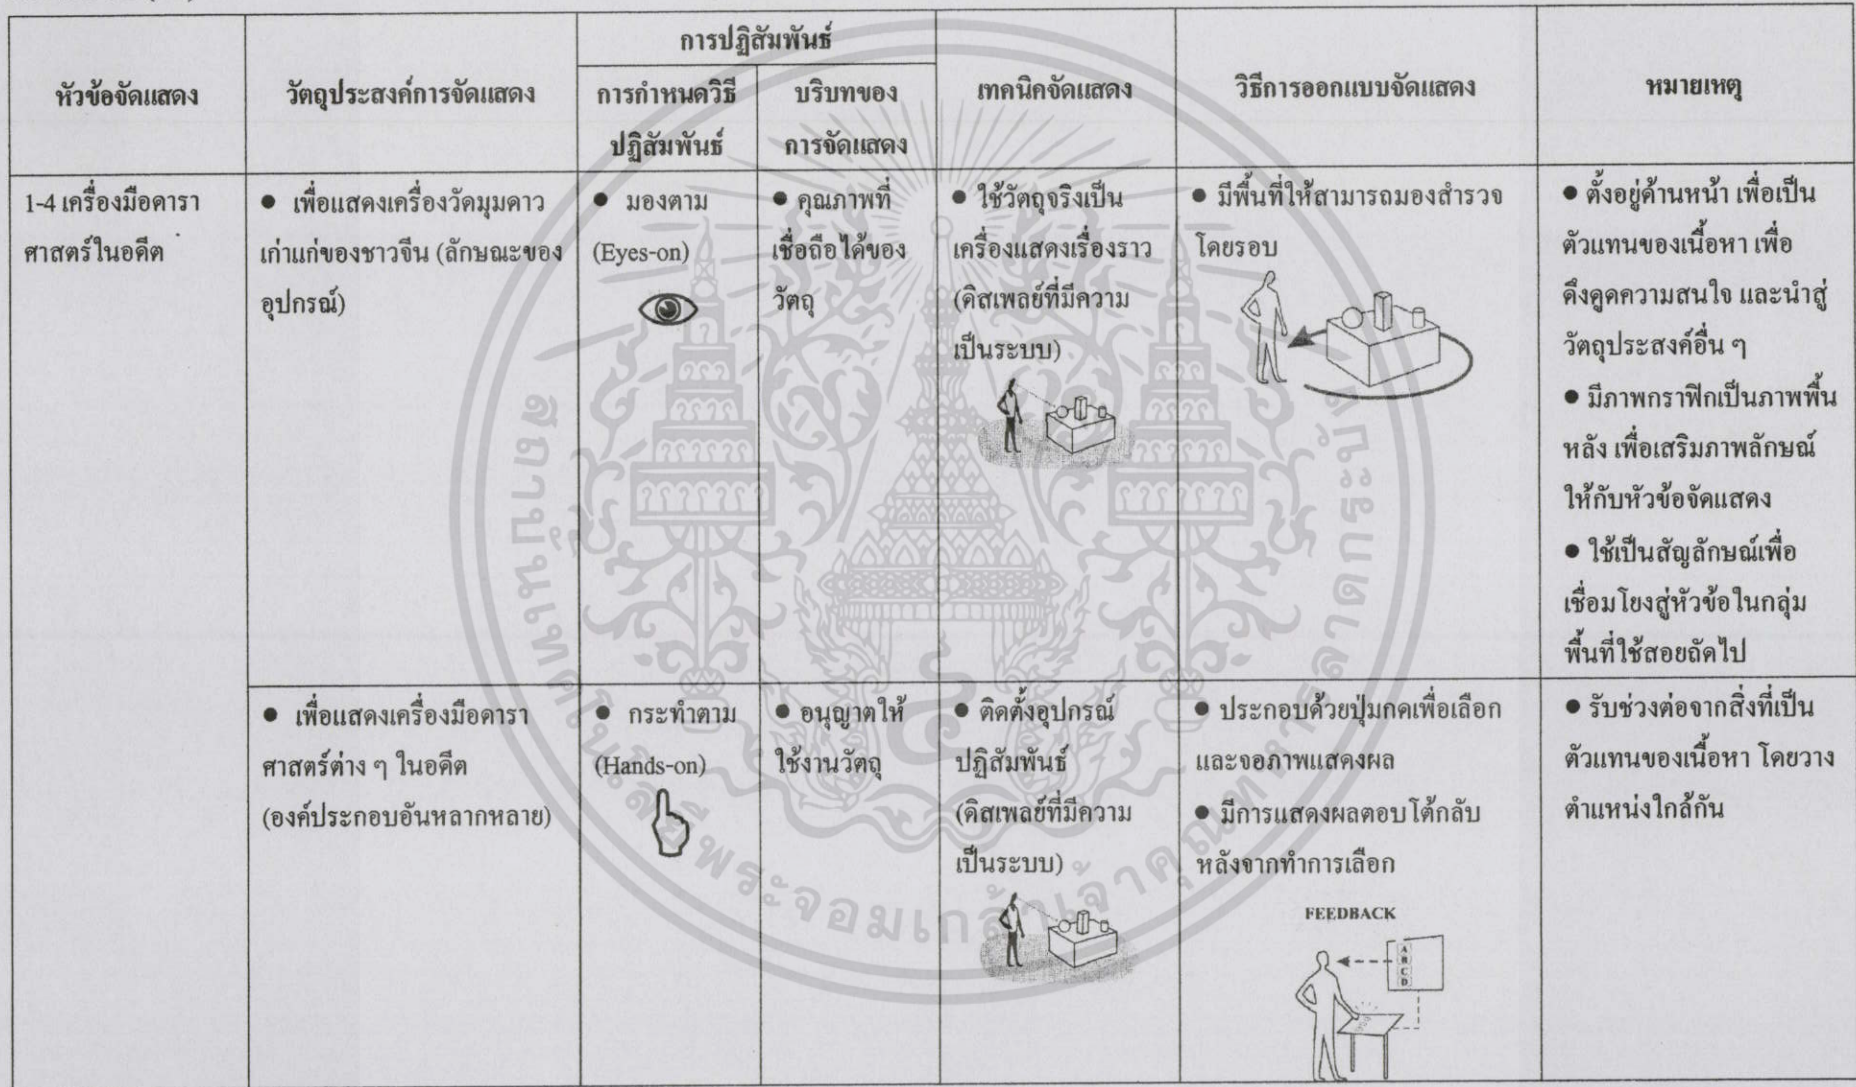 การปฏิสัมพันธ์
หัวข้อจัดแสดง
วัตถุประสงค์การจัดแสดง
การกำหนดวิธี
ปฏิสัมพันธ์
บริบทของ
การจัดแสดง
เทคนิคจัดแสดง
วิธีการออกแบบจัดแสดง
หมายเหตุ
1-4 เครื่องมือดารา
ศาสตร์ในอดีต
● เพื่อแสดงเครื่องวัดมุมดาว
เก่าแก่ของชาวจีน (ลักษณะของ
อุปกรณ์)
● มองตาม
(Eyes-on)
● คุณภาพที่
เชื่อถือได้ของ
วัตถุ
● ใช้วัตถุจริงเป็น
เครื่องแสดงเรื่องราว
(ดิสเพลย์ที่มีความ
เป็นระบบ)
● มีพื้นที่ให้สามารถมองสำรวจ
โดยรอบ
● ตั้งอยู่ด้านหน้า เพื่อเป็น
ตัวแทนของเนื้อหา เพื่อ
ดึงดูดความสนใจ และนำสู่
วัตถุประสงค์อื่น ๆ
● มีภาพกราฟิกเป็นภาพพื้น
หลัง เพื่อเสริมภาพลักษณ์
ให้กับหัวข้อจัดแสดง
● ใช้เป็นสัญลักษณ์เพื่อ
เชื่อมโยงสู่หัวข้อในกลุ่ม
พื้นที่ใช้สอยถัดไป
● เพื่อแสดงเครื่องมือดารา
ศาสตร์ต่าง ๆ ในอดีต
(องค์ประกอบอันหลากหลาย)
● กระทำตาม
(Hands-on)
● อนุญาตให้
ใช้งานวัตถุ
● ติดตั้งอุปกรณ์
ปฏิสัมพันธ์
(ดิสเพลย์ที่มีความ
เป็นระบบ)
● ประกอบด้วยปุ่มกดเพื่อเลือก
และจอภาพแสดงผล
● มีการแสดงผลตอบโต้กลับ
หลังจากทำการเลือก
FEEDBACK
A
B
C
D
● รับช่วงต่อจากสิ่งที่เป็น
ตัวแทนของเนื้อหา โดยวาง
ตำแหน่งใกล้กัน
สถาบันเทคโนโลยีพระจอมเกล้าเจ้าคุณทหารลาดกระบัง